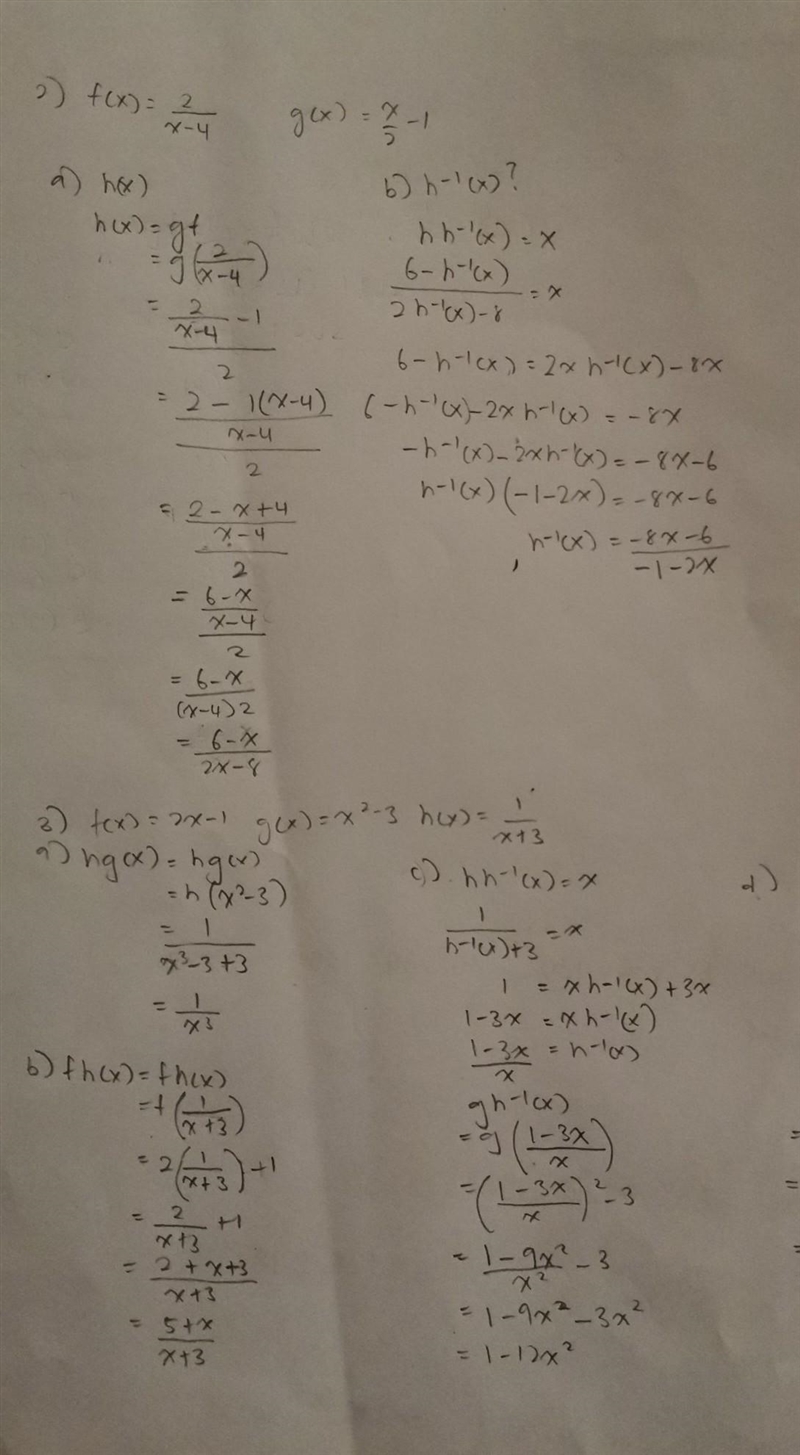 2) f(x) = 2/(x-4)    g(x) = x/2 - 1
a) h(x)
h(x) = gf
= g(2/(x-4))
= (2/(x-4) - 1)/2
= ((2 - 1(x-4))/(x-4))/2
= ((2 - x + 4)/(x-4))/2
= ((6-x)/(x-4))/2
= (6-x)/((x-4)2)
= (6-x)/(2x-8)
b) h⁻¹(x)?
h h⁻¹(x) = x
(6 - h⁻¹(x))/(2h⁻¹(x) - 8) = x
6 - h⁻¹(x) = 2x h⁻¹(x) - 8x
6 - h⁻¹(x) - 2x h⁻¹(x) = -8x
-h⁻¹(x) - 2xh⁻¹(x) = -8x-6
h⁻¹(x)(-1-2x) = -8x-6
, h⁻¹(x) = (-8x-6)/(-1-2x)
3) f(x) = 2x-1  g(x) = x²-3  h(x) = 1/(x+3)
a) hg(x) = hg(x)
= h(x²-3)
= 1/(x³-3+3)
= 1/x³
b) fh(x) = fh(x)
= f(1/(x+3))
= 2(1/(x+3)) + 1
= 2/(x+3) + 1
= (2+x+3)/(x+3)
= (5+x)/(x+3)
c) hh⁻¹(x) = x
1/(h⁻¹(x)+3) = x
1 = xh⁻¹(x) + 3x
1-3x = xh⁻¹(x)
(1-3x)/x = h⁻¹(x)
gh⁻¹(x)
= g((1-3x)/x)
= ((1-3x)/x)² - 3
= (1-9x²)/x² - 3
= 1-9x² - 3x²
= 1-12x²
d)
=
=
=